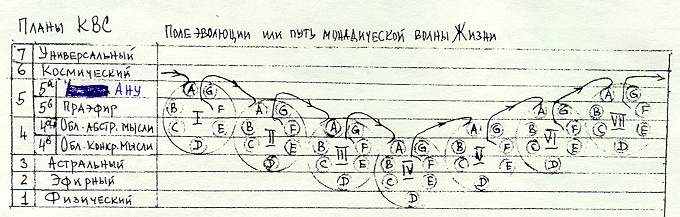 Планы КВС
Поле эволюции или путь монадической волны Жизни
7 Универсальный
6 Космический
5 5а Ану
5б Праэфир
4 4а Обл. абстр. мысли
4б Обл. конкр. мысли
3 Астральный
2 Эфирный
1 Физический
A G B I F C E D
A G B II F C E D
A G B III F C E D
A G B IV F C E D
A G B V F C E D
A G B VI F C E D
A G B VII F C E D